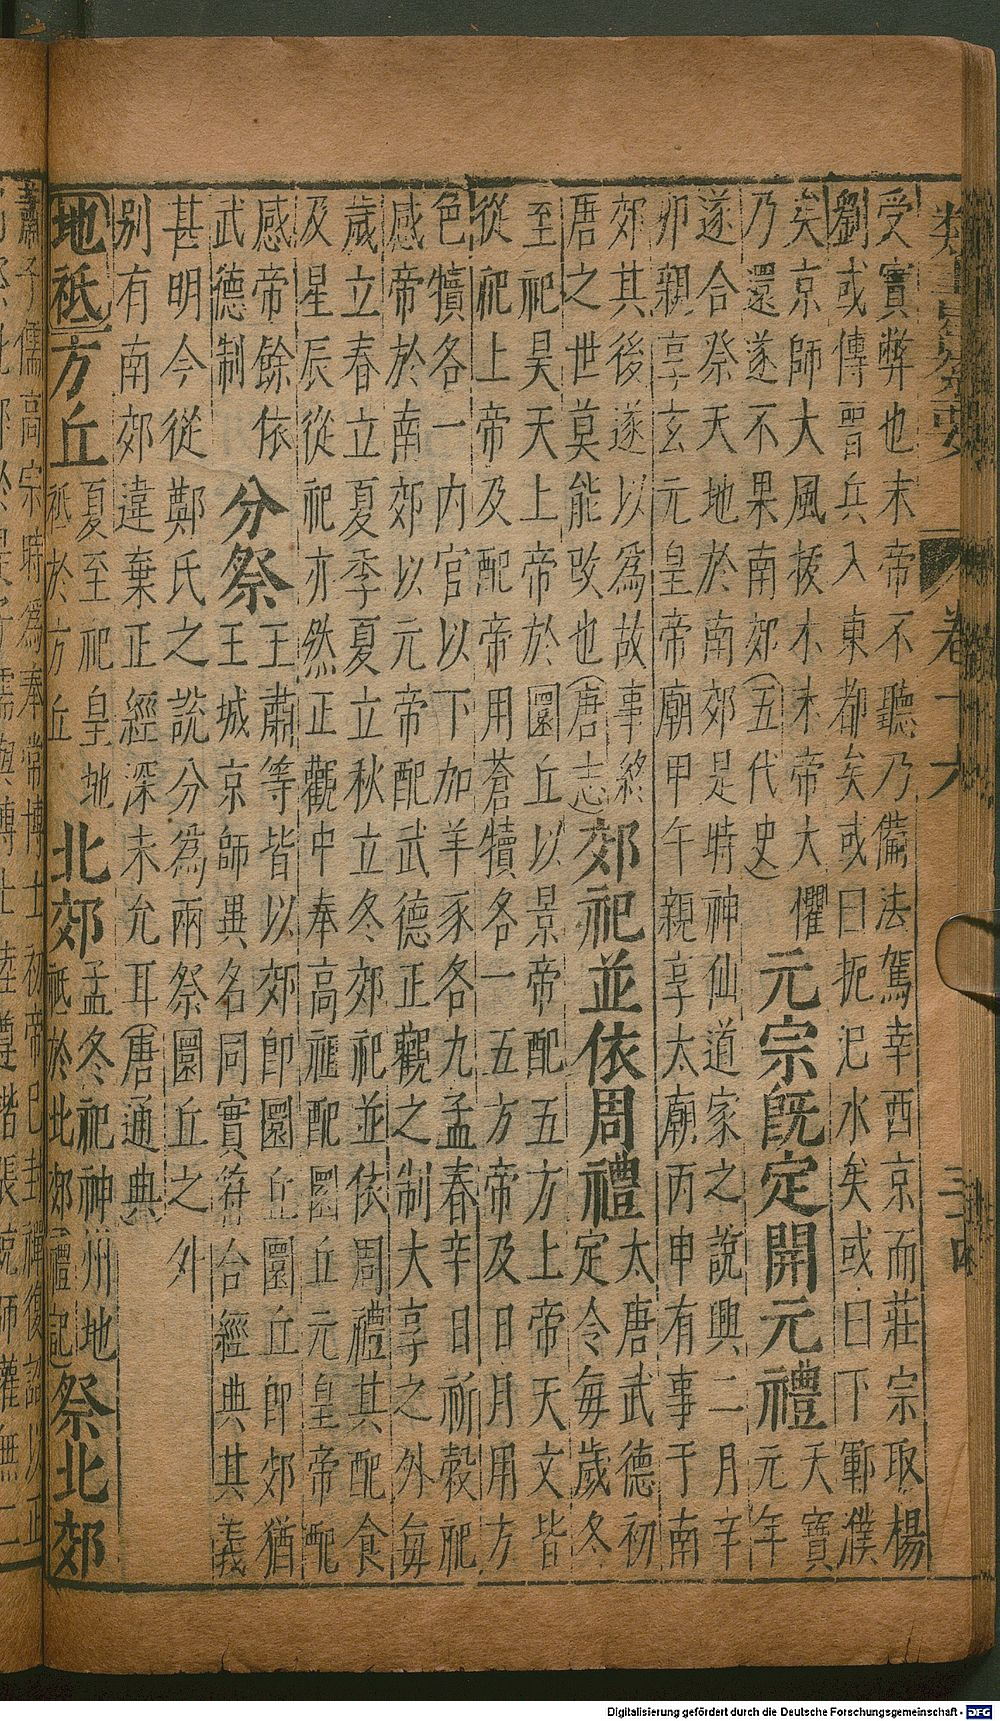 受實弊也末帝不聽乃備法駕幸西京而莊宗取楊
劉或傳晉兵入東都矣或曰扼汜水矣或曰下鄆濮
矣京師大風拔木末帝大懼
乃還遂不果南郊(五代史
元宗既定開元禮
天寶
元年
遂合祭天地於南郊是時神仙道家之說興二月辛
卯親享玄元皇帝廟甲午親享太廟丙申有事于南
郊其後遂以爲故事終
唐之世莫能改也(唐志)
郊祀並依周禮
太唐武德初
定令每歲冬
至祀昊天上帝於圜丘以景帝配五方上帝天文皆
從祀上帝及配帝用蒼犢各一五方帝及日月用方
色犢各一內官以下加羊豕各九孟春辛日祈穀祀
感帝於南郊以元帝配武德正觀之制大享之外每
歲立春立夏季夏立秋立冬郊祀並依周禮其配食
及星辰從祀亦然正觀中奉高祖配圜丘元皇帝配
感帝餘依
武德制
分祭
王肅等皆以郊卽圜丘圜丘卽郊猶
王城京師異名同實符合經典其義
甚明今從鄭氏之說分爲兩祭圜丘之外
別有南郊違棄正經深未允耳(唐通典)
地祇
方丘
夏至祀皇地
祇於方丘
北郊
孟冬祀神州地
祇於北郊(禮記)
祭北郊
類
卷十六
Digitalisierung gefördert durch die Deutsche Forschungsgemeinschaft - DFG